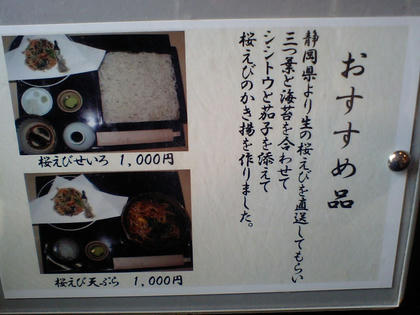 おすすめ品
静岡県より生の桜えびを直送してもらい
三つ葉と海苔を合わせて
シシトウと茄子を添えて
桜えびのかき揚を作りました。
桜えびせいろ 1,000円
桜えび天ぷら 1,000円